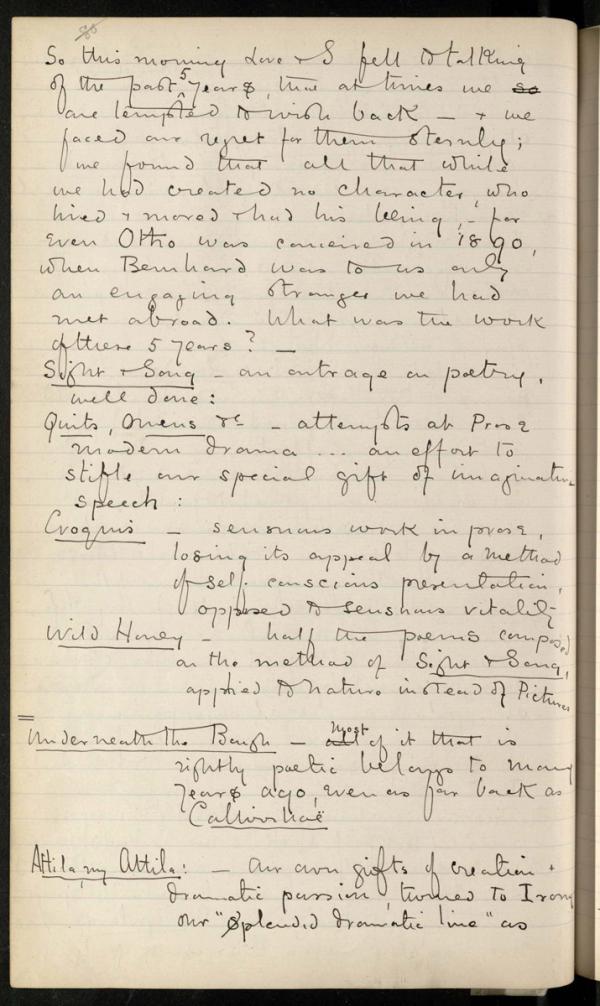 So this morning Love & I fell to talking
of the past 5 years, that at times we so
are tempted to wish back — & we
faced our regret for them sternly;
we found that all that while
we had created no character, who
lived & moved & had his being, — for
even Otho was conceived in 1890,
when Bernhard was to us only
an engaging stranger we had
met abroad. What was the work
of these 5 years? —
Sight & Song — an outrage on poetry,
well done:
Quits, Owens &c — attempts at Prose
modern drama ... an effort to
stifle our special gift of imaginative
speech:
Croquis — sensuous work in prose,
losing its appeal by a method
of self-conscious presentation,
opposed to sensuous vitality
Wild Honey — half the poems composed
on the method of Sight & Song,
applied to nature instead of Pictures
Underneath the Bough — all most of it that is
rightly poetic belongs to many
years ago, even as far back as
Callirrhoë
Attila, my Attila: — our own gifts of creation &
dramatic passion, turned to Irony
our "splendid dramatic line" as